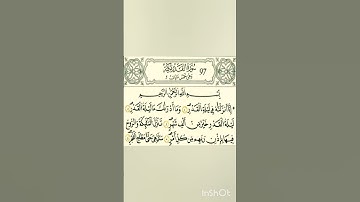 سورة القدر مكية 97
بسم الله الرحمن الرحيم
إنا أنزلناه في ليلة القدر وما أدراك ما ليلة القدر
ليلة القدر خير من ألف شهر تنزل الملائكة والروح
فيها بإذن ربهم من كل أمر سلام هي حتى مطلع الفجر
InShOt